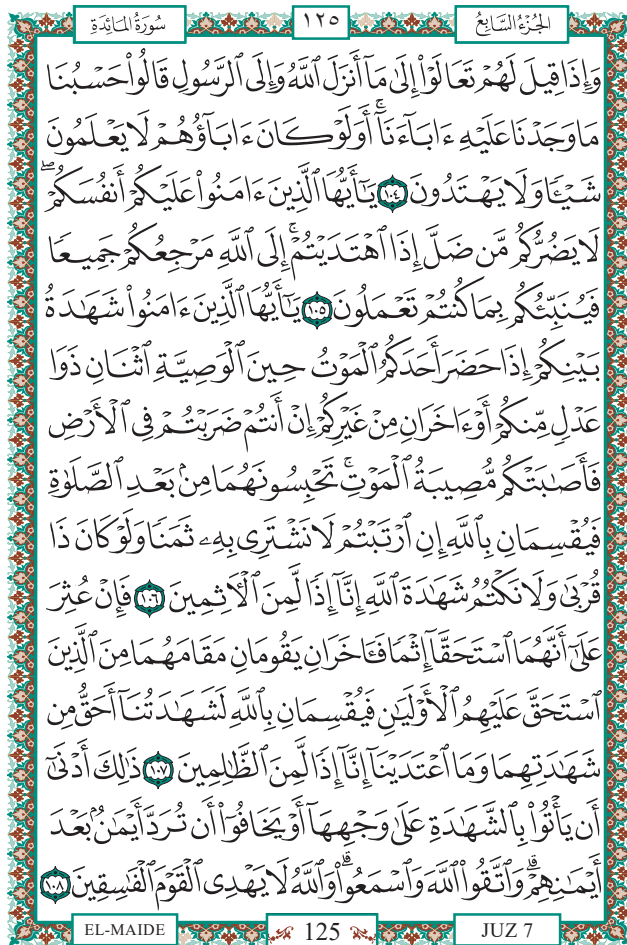 سُورَةُ المَائِدَةِ ١٢٥ الجُزْءُ السَّابِعُ
وَإِذَا قِيلَ لَهُمْ تَعَالَوْا۟ إِلَىٰ مَآ أَنزَلَ ٱللَّهُ وَإِلَى ٱلرَّسُولِ قَالُوا۟ حَسْبُنَا
مَا وَجَدْنَا عَلَيْهِ ءَابَآءَنَآ ۚ أَوَلَوْ كَانَ ءَابَآؤُهُمْ لَا يَعْلَمُونَ
شَيْـًٔا وَلَا يَهْتَدُونَ ١٠٤ يَـٰٓأَيُّهَا ٱلَّذِينَ ءَامَنُوا۟ عَلَيْكُمْ أَنفُسَكُمْ ۖ
لَا يَضُرُّكُم مَّن ضَلَّ إِذَا ٱهْتَدَيْتُمْ ۚ إِلَى ٱللَّهِ مَرْجِعُكُمْ جَمِيعًا
فَيُنَبِّئُكُم بِمَا كُنتُمْ تَعْمَلُونَ ١٠٥ يَـٰٓأَيُّهَا ٱلَّذِينَ ءَامَنُوا۟ شَهَـٰدَةُ
بَيْنِكُمْ إِذَا حَضَرَ أَحَدَكُمُ ٱلْمَوْتُ حِينَ ٱلْوَصِيَّةِ ٱثْنَانِ ذَوَا
عَدْلٍ مِّنكُمْ أَوْ ءَاخَرَانِ مِنْ غَيْرِكُمْ إِنْ أَنتُمْ ضَرَبْتُمْ فِى ٱلْأَرْضِ
فَأَصَـٰبَتْكُم مُّصِيبَةُ ٱلْمَوْتِ ۚ تَحْبِسُونَهُمَا مِنۢ بَعْدِ ٱلصَّلَوٰةِ
فَيُقْسِمَانِ بِٱللَّهِ إِنِ ٱرْتَبْتُمْ لَا نَشْتَرِى بِهِۦ ثَمَنًا وَلَوْ كَانَ ذَا
قُرْبَىٰ وَلَا نَكْتُمُ شَهَـٰدَةَ ٱللَّهِ إِنَّآ إِذًا لَّمِنَ ٱلْـَٔاثِمِينَ ١٠٦ فَإِنْ عُثِرَ
عَلَىٰٓ أَنَّهُمَا ٱسْتَحَقَّآ إِثْمًا فَـَٔاخَرَانِ يَقُومَانِ مَقَامَهُمَا مِنَ ٱلَّذِينَ
ٱسْتَحَقَّ عَلَيْهِمُ ٱلْأَوْلَيَـٰنِ فَيُقْسِمَانِ بِٱللَّهِ لَشَهَـٰدَتُنَآ أَحَقُّ مِن
شَهَـٰدَتِهِمَا وَمَا ٱعْتَدَيْنَآ إِنَّآ إِذًا لَّمِنَ ٱلظَّـٰلِمِينَ ١٠٧ ذَٰلِكَ أَدْنَىٰٓ
أَن يَأْتُوا۟ بِٱلشَّهَـٰدَةِ عَلَىٰ وَجْهِهَآ أَوْ يَخَافُوٓا۟ أَن تُرَدَّ أَيْمَـٰنٌۢ بَعْدَ
أَيْمَـٰنِهِمْ ۗ وَٱتَّقُوا۟ ٱللَّهَ وَٱسْمَعُوا۟ ۗ وَٱللَّهُ لَا يَهْدِى ٱلْقَوْمَ ٱلْفَـٰسِقِينَ ١٠٨
EL-MAIDE 125 JUZ 7